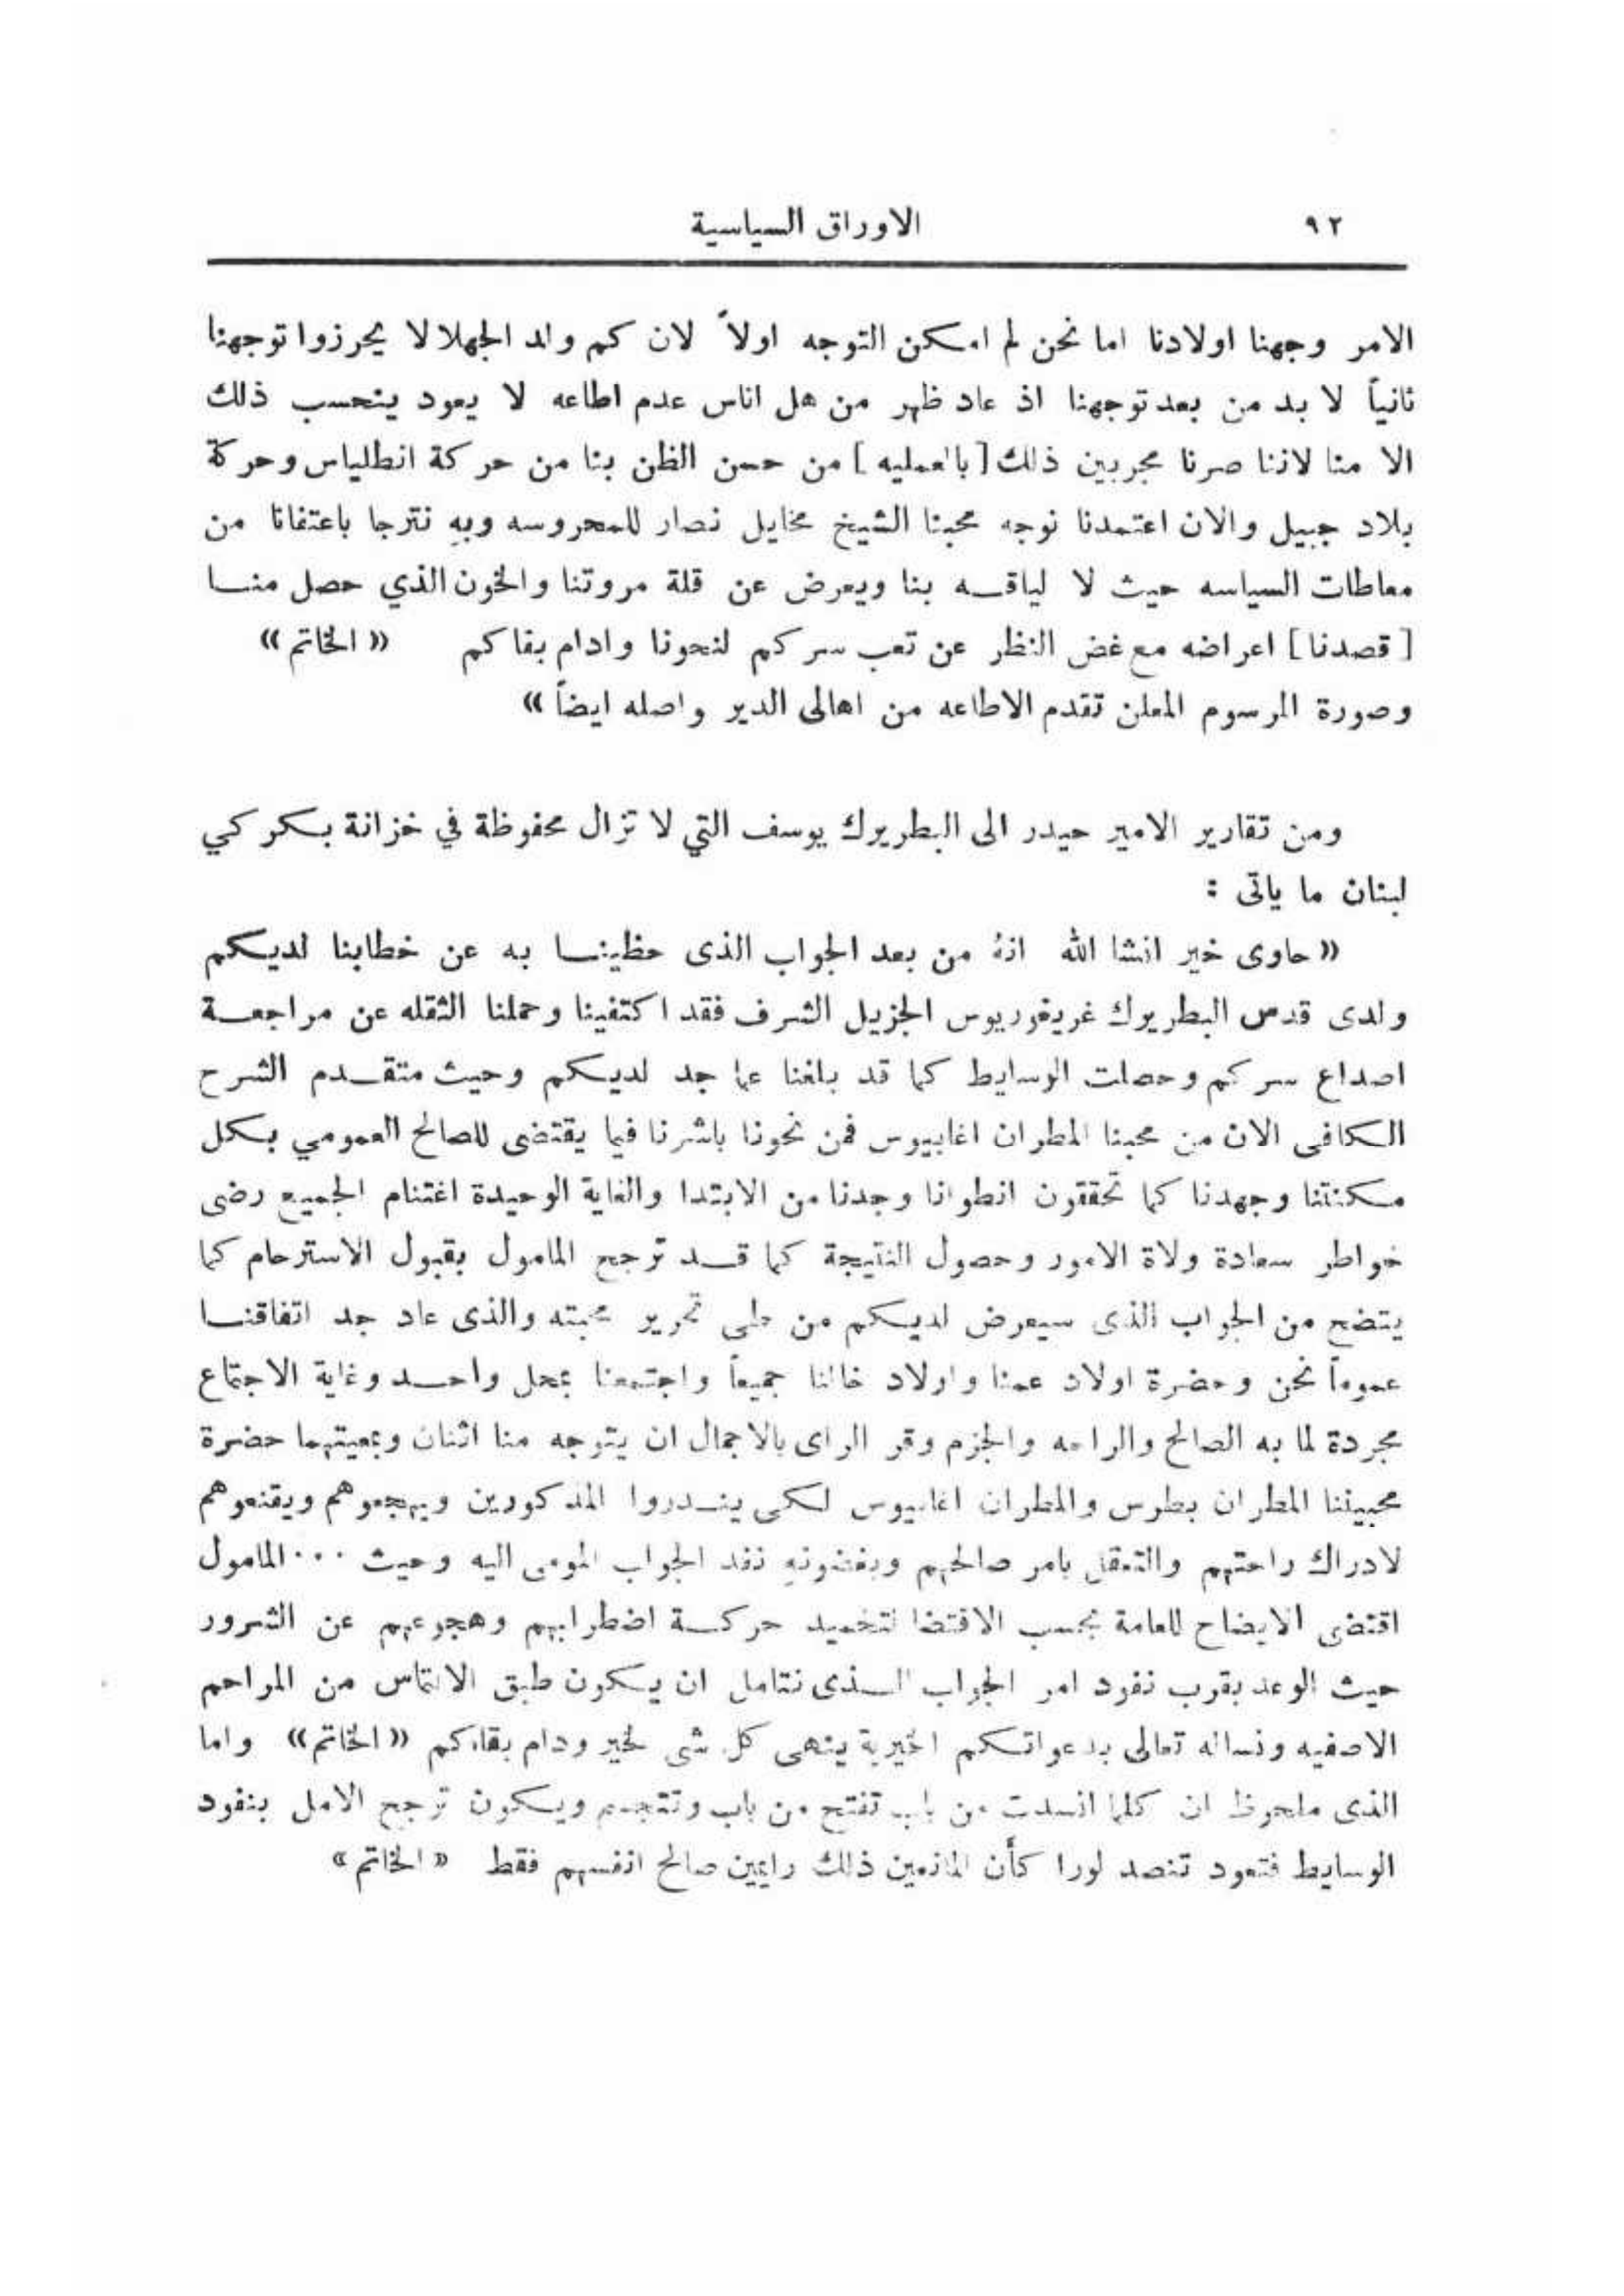 ٩٢
الاوراق السياسية
الامر وجهنا اولادنا اما نحن لم امكن التوجه اولاً لان كم ولد الجهلا لا يحرزوا توجهنا
ثانياً لا بد من بعد توجهنا اذ عاد ظهر من هل اناس عدم اطاعه لا يعود ينحسب ذلك
الا منا لاننا صرنا مجربين ذلك [بالعمليه] من حسن الظن بنا من حركة انطلياس وحركة
بلاد جبيل والان اعتمدنا نوجه محبنا الشيخ مخايل نصار للمحروسه وبهِ نترجا باعتفانا من
معاطات السياسه حيث لا لياقه بنا ويعرض عن قلة مروتنا والخون الذي حصل منا
[قصدنا] اعراضه مع غض النظر عن تعب سركم لنحونا وادام بقاكم «الخاتم»
وصورة المرسوم المعلن تقدم الاطاعه من اهالى الدير واصله ايضاً»
ومن تقارير الامير حيدر الى البطريرك يوسف التي لا تزال محفوظة في خزانة بكركي
لبنان ما ياتى :
«حاوى خير انشا الله انهُ من بعد الجواب الذى حظينا به عن خطابنا لديكم
ولدى قدس البطريرك غريغوريوس الجزيل الشرف فقد اكتفينا وحملنا الثقله عن مراجعة
اصداع سركم وحصلت الوسايط كما قد بلغنا عما جد لديكم وحيث متقدم الشرح
الكافى الان من محبنا المطران اغابيوس فمن نحونا باشرنا فيما يقتضى للصالح العمومي بكل
مكنتنا وجهدنا كما تحققون انطوانا وجدنا من الابتدا والغاية الوحيدة اغتنام الجميع رضى
خواطر سعادة ولاة الامور وحصول النتيجة كما قد ترجح المامول بقبول الاسترحام كما
يتضح من الجواب الذى سيعرض لديكم من طى تحرير محبته والذى عاد جد اتفاقنا
عموماً نحن وحضرة اولاد عمنا واولاد خالنا جميعاً واجتمعنا بمحل واحد وغاية الاجتماع
مجردة لما به الصالح والراحه والجزم وقر الراى بالاجمال ان يتوجه منا اثنان وبمعيتهما حضرة
محبيننا المطران بطرس والمطران اغابيوس لكى ينذروا المذكورين ويهجعوهم ويقنعوهم
لادراك راحتهم والتعقل بامر صالحهم وبغضونهِ نفد الجواب المومى اليه وحيث ... المامول
اقتضى الايضاح للعامة بحسب الاقتضا لتخميد حركة اضطرابهم وهجوعهم عن الشرور
حيث الوعد بقرب نفود امر الجواب الذى نتامل ان يكون طبق الالتماس من المراحم
الاصفيه ونساله تعالى بدعواتكم الخيرية ينهى كل شى لخير ودام بقاءكم «الخاتم» واما
الذى ملحوظ ان كلما انسدت من باب تفتح من باب وتتجسم ويكون ترجح الامل بنفود
الوسايط فتعود تنصد لورا كأن المانعين ذلك رايمين صالح انفسهم فقط «الخاتم»